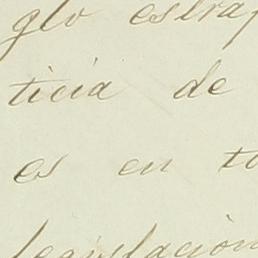 glo estra
ticia de
es en to
legislación